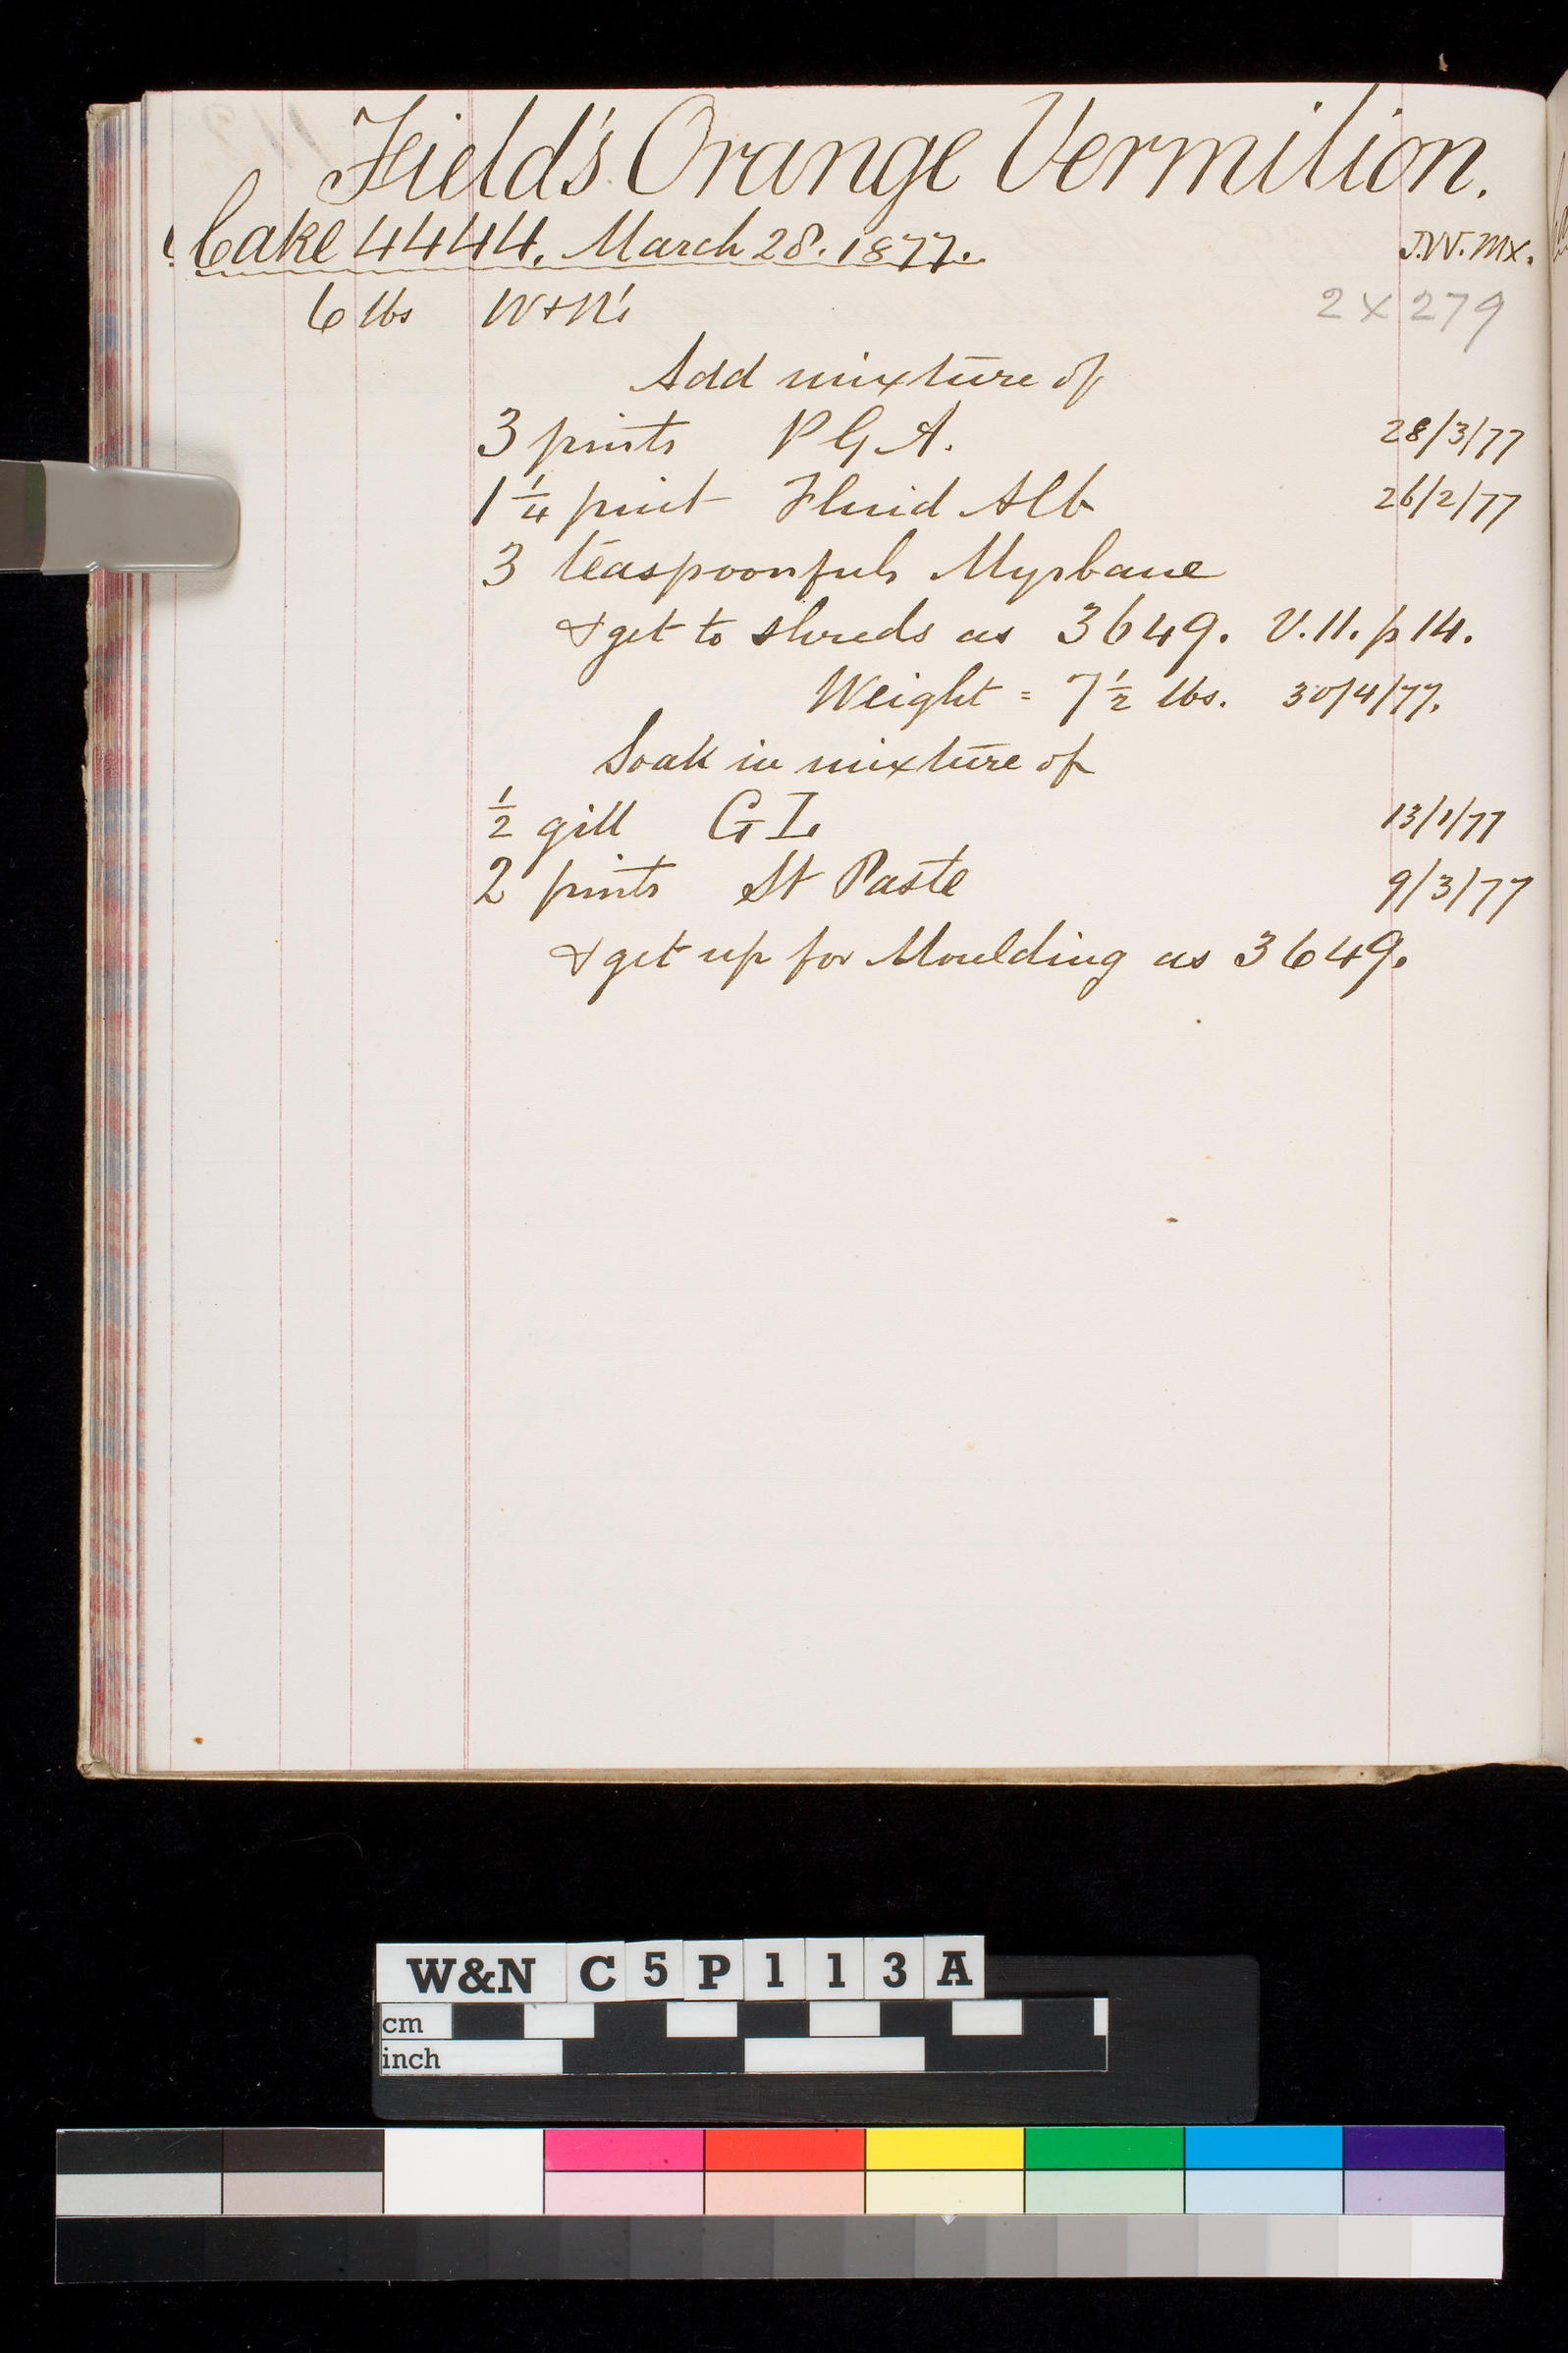 Field's Orange Vermilion.
Cake 4444. March 28. 1877. J.W. Mx.
6 lbs W+N's 2 x 279
Add mixture of
3 pints P G A. 28/3/77
1 1/4 pint Fluid Alb 26/2/77
3 teaspoonfuls Myrbane
& get to shreds as 3649. V.11. p 14.
Weight = 7 1/2 lbs. 30/4/77.
Soak in mixture of
1/2 gill G I. 13/1/77
2 pints St Paste 9/3/77
& get up for Moulding as 3649.
W&N C 5 P 1 1 3 A
cm
inch